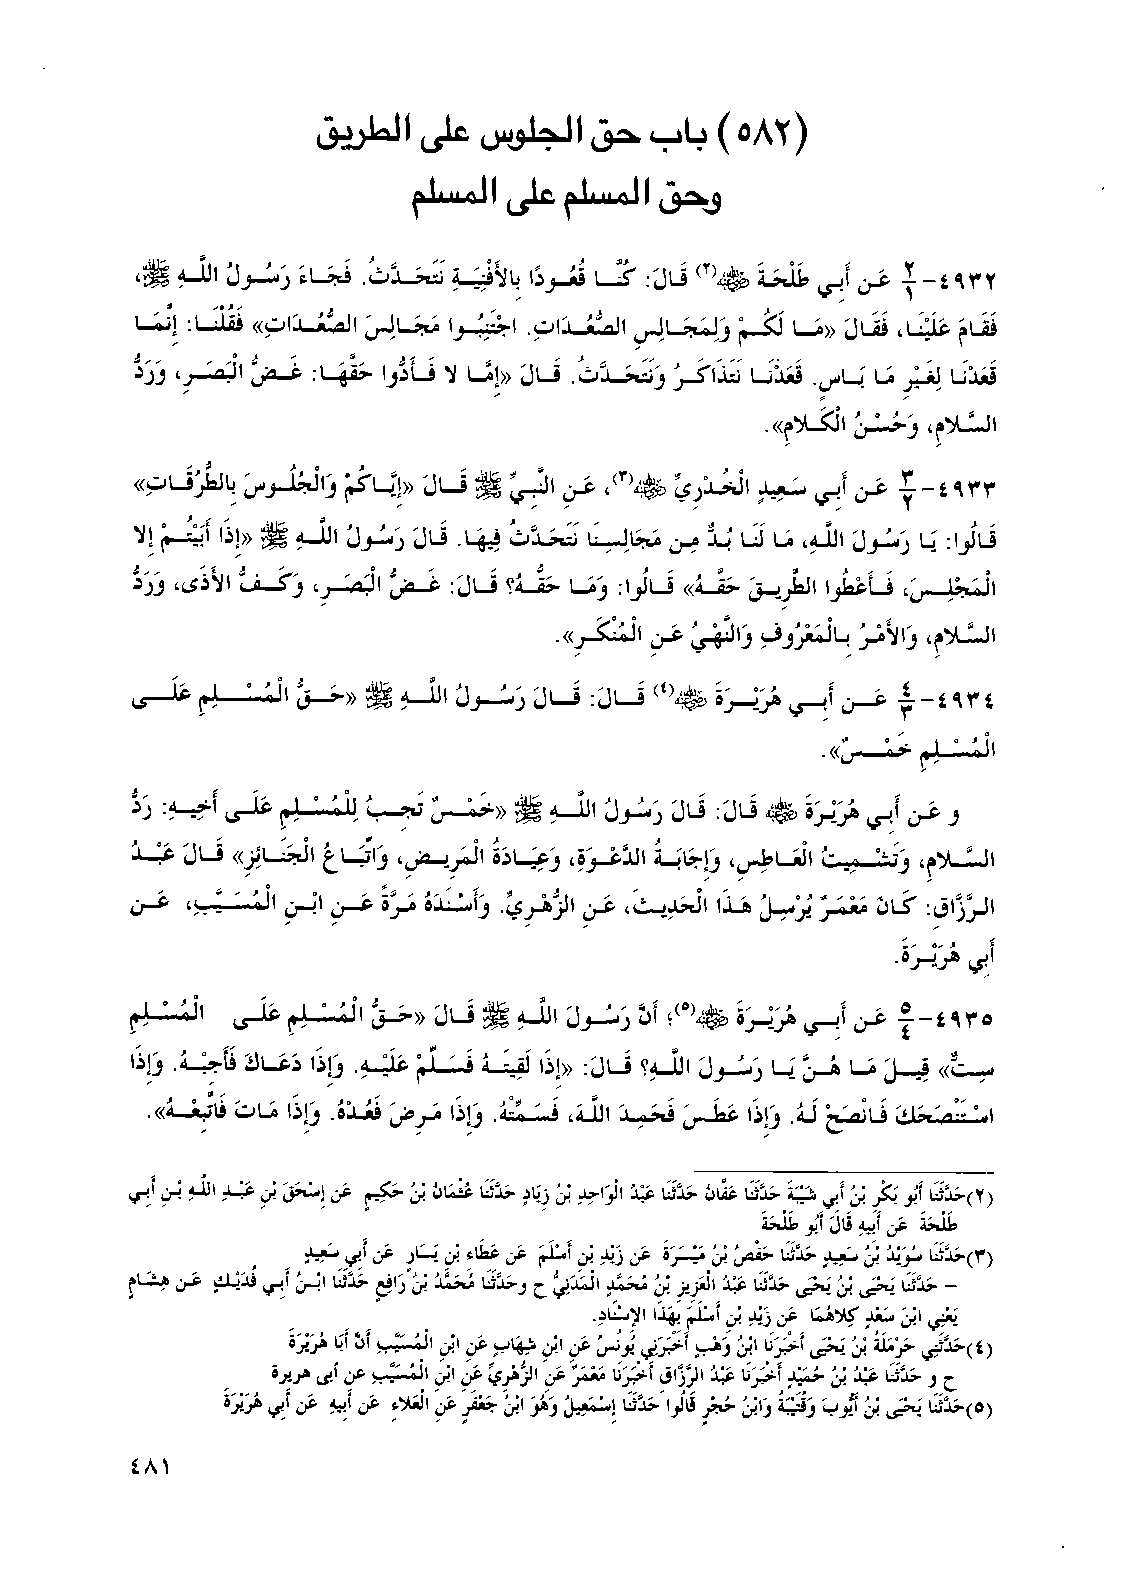 (٥٨٢) باب حق الجلوس على الطريق
وحق المسلم على المسلم
٤٩٣٢- ٢/١ عَن أَبِي طَلْحَةَ ﷺ(٢) قَالَ: كُنَّا قُعُودًا بِالأَفْنِيَةِ نَتَحَدَّثُ. فَجَاءَ رَسُولُ اللَّهِ ﷺ،
فَقَامَ عَلَيْنَا، فَقَالَ «مَا لَكُمْ وَلِمَجَالِسِ الصُّعُدَاتِ. اجْتَنِبُوا مَجَالِسَ الصُّعُدَاتِ» فَقُلْنَا: إِنَّمَا
قَعَدْنَا لِغَيْرِ مَا بَاسٍ. قَعَدْنَا نَتَذَاكَرُ وَنَتَحَدَّثُ. قَالَ «إِمَّا لا فَأَدُّوا حَقَّهَا: غَضُّ الْبَصَرِ، وَرَدُّ
السَّلامِ، وَحُسْنُ الْكَلامِ».
٤٩٣٣- ٣/٢ عَن أَبِي سَعِيدٍ الْخُدْرِيِّ ﷺ(٣)، عَنِ النَّبِيِّ ﷺ قَالَ «إِيَّاكُمْ وَالْجُلُوسَ بِالطُّرُقَاتِ»
قَالُوا: يَا رَسُولَ اللَّهِ، مَا لَنَا بُدٌّ مِن مَجَالِسِنَا نَتَحَدَّثُ فِيهَا. قَالَ رَسُولُ اللَّهِ ﷺ «إِذَا أَبَيْتُمْ إِلا
الْمَجْلِسَ، فَأَعْطُوا الطَّرِيقَ حَقَّهُ» قَالُوا: وَمَا حَقُّهُ؟ قَالَ: غَضُّ الْبَصَرِ، وَكَفُّ الأَذَى، وَرَدُّ
السَّلامِ، وَالأَمْرُ بِالْمَعْرُوفِ وَالنَّهْيُ عَنِ الْمُنْكَرِ».
٤٩٣٤- ٤/٣ عَن أَبِي هُرَيْرَةَ ﷺ(٤) قَالَ: قَالَ رَسُولُ اللَّهِ ﷺ «حَقُّ الْمُسْلِمِ عَلَى
الْمُسْلِمِ خَمْسٌ».
و عَن أَبِي هُرَيْرَةَ ﷺ قَالَ: قَالَ رَسُولُ اللَّهِ ﷺ «خَمْسٌ تَجِبُ لِلْمُسْلِمِ عَلَى أَخِيهِ: رَدُّ
السَّلامِ، وَتَشْمِيتُ الْعَاطِسِ، وَإِجَابَةُ الدَّعْوَةِ، وَعِيَادَةُ الْمَرِيضِ، وَاتِّبَاعُ الْجَنَائِزِ» قَالَ عَبْدُ
الرَّزَّاقِ: كَانَ مَعْمَرٌ يُرْسِلُ هَذَا الْحَدِيثَ، عَنِ الزُّهْرِيِّ. وَأَسْنَدَهُ مَرَّةً عَنِ ابْنِ الْمُسَيَّبِ، عَن
أَبِي هُرَيْرَةَ.
٤٩٣٥- ٥/٤ عَن أَبِي هُرَيْرَةَ ﷺ(٥)؛ أَنَّ رَسُولَ اللَّهِ ﷺ قَالَ «حَقُّ الْمُسْلِمِ عَلَى الْمُسْلِمِ
سِتٌّ» قِيلَ مَا هُنَّ يَا رَسُولَ اللَّهِ؟ قَالَ: «إِذَا لَقِيتَهُ فَسَلِّمْ عَلَيْهِ. وَإِذَا دَعَاكَ فَأَجِبْهُ. وَإِذَا
اسْتَنْصَحَكَ فَانْصَحْ لَهُ. وَإِذَا عَطَسَ فَحَمِدَ اللَّهَ، فَسَمِّتْهُ. وَإِذَا مَرِضَ فَعُدْهُ. وَإِذَا مَاتَ فَاتَّبِعْهُ».
(٢) حَدَّثَنَا أَبُو بَكْرِ بْنُ أَبِي شَيْبَةَ حَدَّثَنَا عَفَّانُ حَدَّثَنَا عَبْدُ الْوَاحِدِ بْنُ زِيَادٍ حَدَّثَنَا عُثْمَانُ بْنُ حَكِيمٍ عَن إِسْحَقَ بْنِ عَبْدِ اللَّهِ بْنِ أَبِي
طَلْحَةَ عَن أَبِيهِ قَالَ أَبُو طَلْحَةَ
(٣) حَدَّثَنَا سُوَيْدُ بْنُ سَعِيدٍ حَدَّثَنَا حَفْصُ بْنُ مَيْسَرَةَ عَن زَيْدِ بْنِ أَسْلَمَ عَن عَطَاءِ بْنِ يَسَارٍ عَن أَبِي سَعِيدٍ
- حَدَّثَنَا يَحْيَى بْنُ يَحْيَى حَدَّثَنَا عَبْدُ الْعَزِيزِ بْنُ مُحَمَّدٍ الْمَدَنِيُّ ح وحَدَّثَنَا مُحَمَّدُ بْنُ رَافِعٍ حَدَّثَنَا ابْنُ أَبِي فُدَيْكٍ عَن هِشَامٍ
يَعْنِي ابْنَ سَعْدٍ كِلاهُمَا عَن زَيْدِ بْنِ أَسْلَمَ بِهَذَا الإِسْنَادِ.
(٤) حَدَّثَنِي حَرْمَلَةُ بْنُ يَحْيَى أَخْبَرَنَا ابْنُ وَهْبٍ أَخْبَرَنِي يُونُسُ عَنِ ابْنِ شِهَابٍ عَنِ ابْنِ الْمُسَيَّبِ أَنَّ أَبَا هُرَيْرَةَ
ح و حَدَّثَنَا عَبْدُ بْنُ حُمَيْدٍ أَخْبَرَنَا عَبْدُ الرَّزَّاقِ أَخْبَرَنَا مَعْمَرٌ عَنِ الزُّهْرِيِّ عَنِ ابْنِ الْمُسَيَّبِ عن أبى هريرة
(٥) حَدَّثَنَا يَحْيَى بْنُ أَيُّوبَ وَقُتَيْبَةُ وَابْنُ حُجْرٍ قَالُوا حَدَّثَنَا إِسْمَعِيلُ وَهُوَ ابْنُ جَعْفَرٍ عَنِ الْعَلاءِ عَن أَبِيهِ عَن أَبِي هُرَيْرَةَ
٤٨١